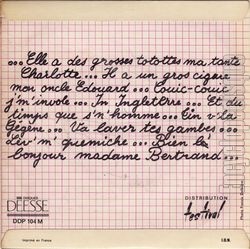 ...Elle a des grosses totottes ma tante
Charlotte... Il a un gros cigare
mon oncle Edouard... Couic-couic
j'm'invole... In Ingletêrre... Et du
timps que j'n'homme... Ein v'la
Gégène... Va laver tes gambes...
Liv' m' quemiche... Bien le
bonjour madame Bertrand...
DISQUES
DEESSE
DDP 104 M
DISTRIBUTION
festival
Imprimé en France